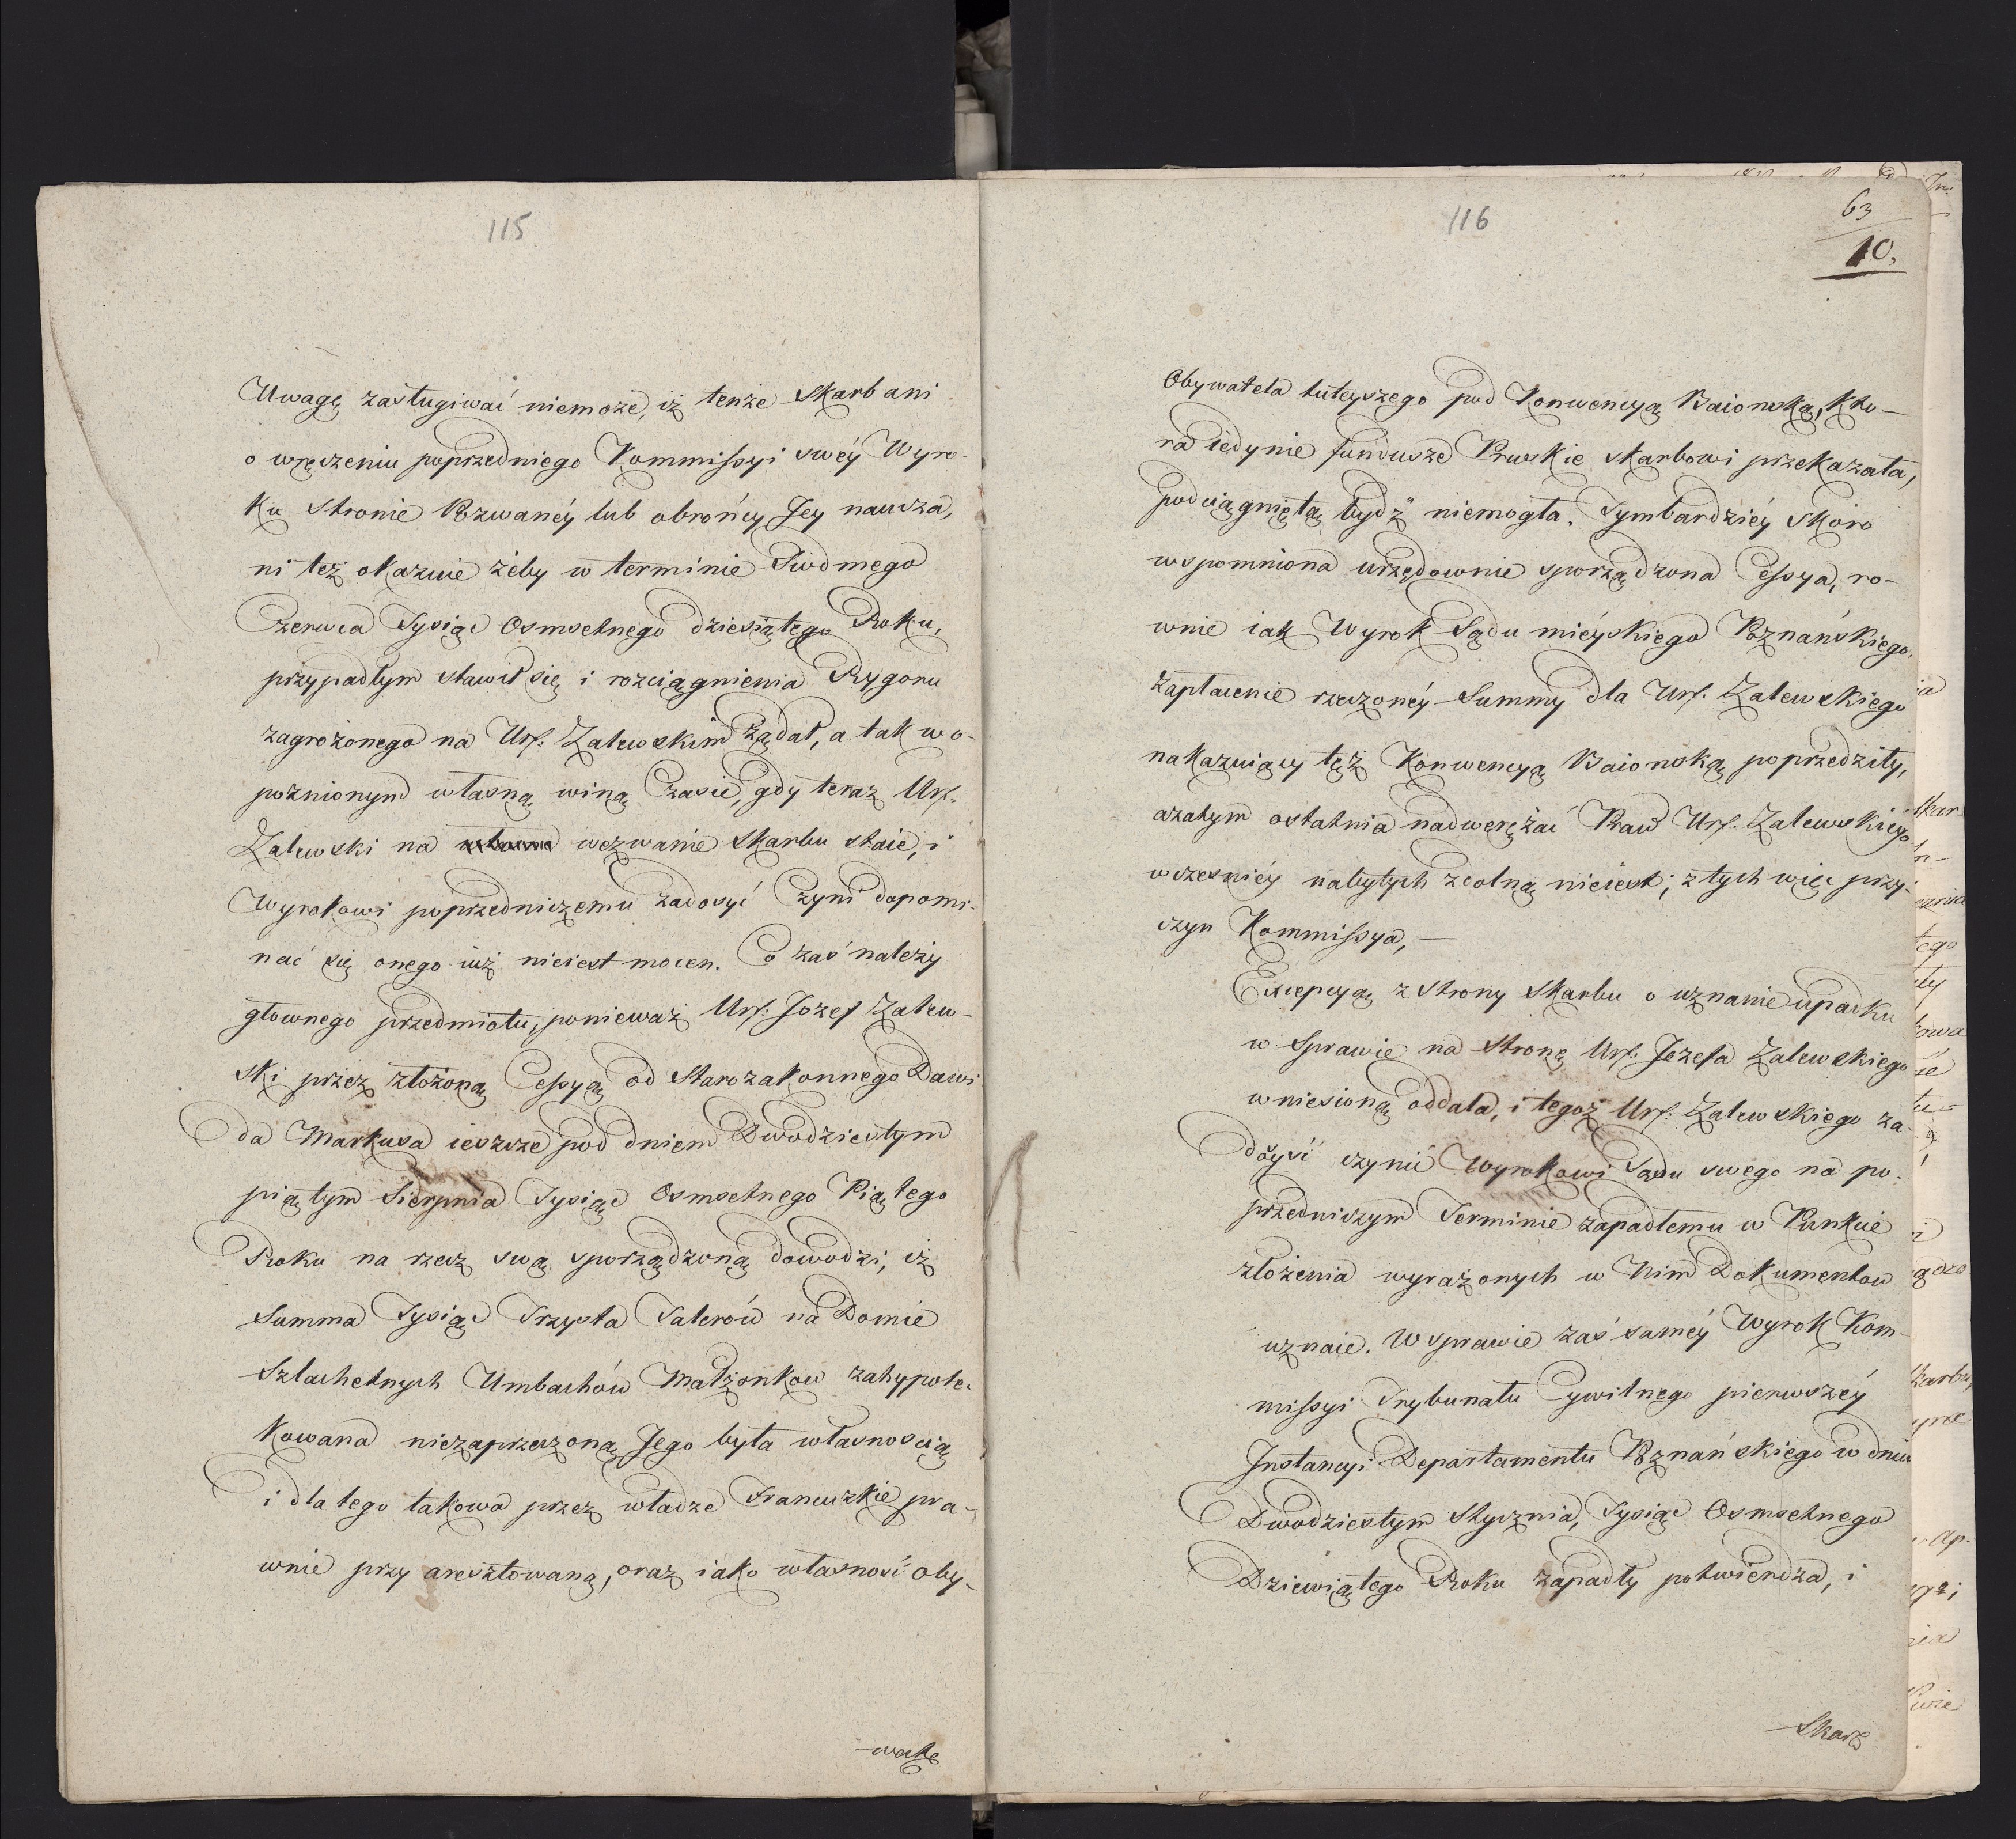 115
Uwagę zasługiwać niemoże, iż tenże Skarb ani
o wręczeniu poprzedniego Kommissyi swéy Wyro-
ku Stronie Pozwanéy lub obrońcy Jey naucza,
ni też okazuie żeby w terminie Siódmego
Czerwca Tysiąc Osmsetnego dziesiątego Roku,
przypadłym stawił się i rozciągnienia Rygoru
zagrożonego na Ur. Zalewskim żądał, a tak w o-
poznionym własną winą Czasie, gdy teraz Ur.
Zalewski na wezwanie Skarbu staie, i
Wyrokowi poprzedniczemu zadosyć Czyni dopomi-
nać się onego iuż nieiest mocen. Co zaś należy
głownego przedmiotu, ponieważ Ur. Jozef Zalew-
ski przez złożoną Cessyą od Starozakonnego Dawi
da Markusa ieszcze pod dniem Dwudziestym
piątym Sierpnia Tysiąc Osmsetnego Piątego
Roku na rzecz swą sporządzoną dowodzi, iż
Summa Tysiąc Trzysta Talerów na Domie
Szlachetnych Umbachów Małżonkow zahypote-
kowana niezaprzeczoną Jego była własnoscią
i dla tego takowa przez władze Francuzkie pra-
wnie przy aresztowaną, oraz iako własność oby-
wate
116
63
10.
Obywatela tuteyszego pod Konwencyą Baionską, kto-
ra iedynie fundusze Pruskie skarbowi przekazała,
podciągniętą bydź niemogła. Tymbardziéy skoro
wspomniona urzędownie sporządzona Cessya, ro-
wnie iak Wyrok Sądu miéyskiego Poznańskiego
zapłacenie rzeczonéy Summy dla Ur. Zalewskiego
nakazuiący też Konwencyą Baionską poprzedziły,
azatym ostatnia nadwerężać Praw Ur. Zalewskiego
wczesniéy nabytych zdolną nieiest; z tych więc przy-
czyn Kommissya, —
Excepcyą z Strony Skarbu o uznanie upadku
w Sprawie na stronę Ur. Jozefa Zalewskiego
wniesioną oddala, i tegoż Ur. Zalewskiego za-
dosyć czynić Wyrokowi Sądu swego na po-
przedniczym Terminie zapadłemu w Punkcie
złożenia wyrażonych w Nim Dokumentow
uznaie. W sprawie zaś saméy Wyrok Kom-
missyi Trybunału Cywilnego pierwszéy
Instancyi Departamentu Poznańskiego w dniu
Dwudziestym Stycznia, Tysiąc Osmsetnego
Dziewiątego Roku zapadły potwierdza, i
Skarb